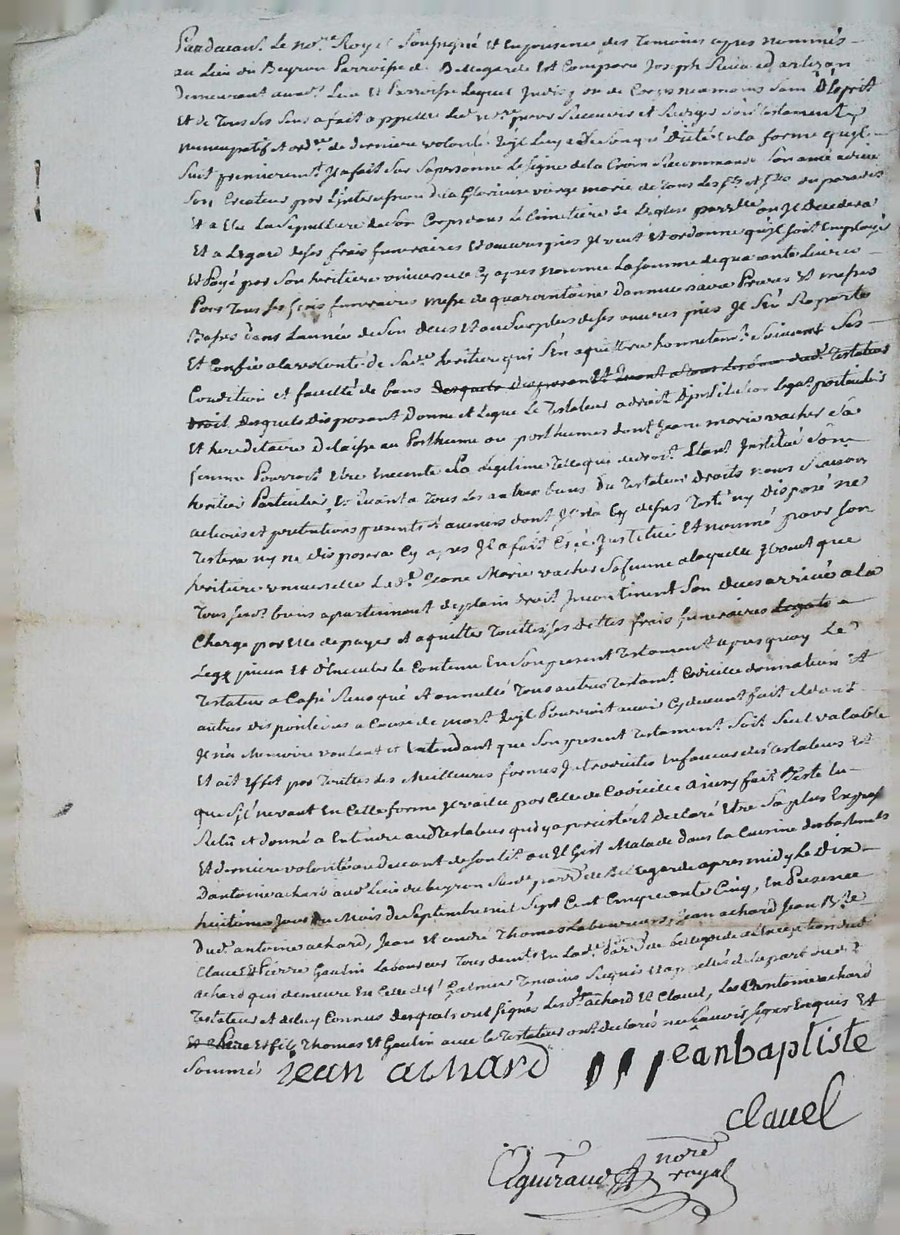 Pardevant Le no.re Royal Soubsigné et En presence des Temoins apres nommés
au Lieu du Beyron Parroisse de Bellegarde Est Comparu Joseph artizan
demeurant aud.t Lieu Et Parroisse Lequel de Corps neamoins Sain D'Esprit
Et de Tous Ses Sens a fait appeller Led. no.re pour Recevoir et Rediger Son testament
nuncupatif Et ord.re de derniere volonté quil Luy a dicté En la forme quil
Suit premierem.t Il a fait Sur Sa personne Le Signe de la Croix Recommandé Son ame a dieu
Son Createur par L'intercession de la Glorieuse vierge marie de tous Les St.s et St.es du paradis
Et a Elu La Sepulture de Son Corps dans Le Cimetiere de L'eglise parr.lle ou Il decedera
Et a Legard de Ses frais funeraires Et oeuvres pies Il veut Et ordonne qu'il Soit Employé
Et Payé par Son heritiere universelle Cy apres nommée La Somme de quarante Livres
Pour Tous Ses frais funeraires messe de quarantaine Dannuersaire Prieres Et messes
Basses dans Lannée de Son deces Et au Surplus de Ses oeuvres pies Il S'en Raporte
Et Confie a la volonté de Sad.e heritiere qui S'en aquittera honnetem.t Suivant Ses
Condition et faculté de biens
Desquels disposant Donne et Legue Le Testateur a droit D'institution Legat particuliers
Et hereditaire Delaisse au Posthume ou posthumes dont Jeane marie vacher Sa
femme Pourroit Etre Enceinte La Legitime Telle qui de droit Etant Institué Son
heritier Particulier, Et Quant a Tous Les autres biens Du Testateur Droits noms Raisons
actions et pretentions presents et avenirs dont Il n'a Cy dessus Testé ny Disposé ne
Testera ny ne disposera Cy apres Il a fait Créé Institué Et nommé pour Son
heritiere universelle Lad.e Jeane Marie vacher Sa femme a laquelle Il veut que
Tous Sesd. biens apartiennent de plain droit Incontinent Son deces arrivé a la
Charge par Elle de payer et aquitter Toutes Ses Dettes frais funeraires Legats a
Et d'Executer le Contenu En Son present Testament apres quoy Le
Testateur a Cassé Revoqué Et annullé Tous autres Testam.t Codicille donnation Et
autres dispositions a Cause de mort quil Pourroit avoir Cy devant fait et dont
Il n'a Memoire voulant et Entendant que Son present Testament Soit Seul valable
Et ait Effet par Toutes Les Meilleures formes Introduites En faveur des Testateurs Et
que S'il ne vaut En Cette forme Il vaille par Celle de Codicille Ainsy fait Testé Lu
Relu et donné a Entendre aud. Testateur qui y a persisté Et declaré Etre Sa plus Expresse
Et derniere volonté au devant de Son lit ou Il Gist Malade dans La Cuisine des batiments
Dantoine achard aud. Lieu du beyron Susd. parr.se de Bellegarde apres midy Le Dix
huitieme Jour du Mois de Septembre mil Sept Cent Cinquante Cinq, En Presence
Dud. antoine achard, Jean Et andré Thomas Laboureurs, Jean achard Jean B.te
Clavel Et Pierre Gautin Laboureur Tous dem.ts En Lad. Parr.se de bellegarde a L'exception dud.
achard qui demeure En Celle de Temoins Requis Et appellés de la part dud.
Testateur et de Luy Connus desquels ont Signés Les S.rs achard Et Clavel, Les D'antoine achard
Et fils Thomas Et Gautin avec Le Testateur ont declarés ne Sçavoir Signer Enquis Et
Sommés jean achard jeanbaptiste
clavel
Aguiraud no.re
royal